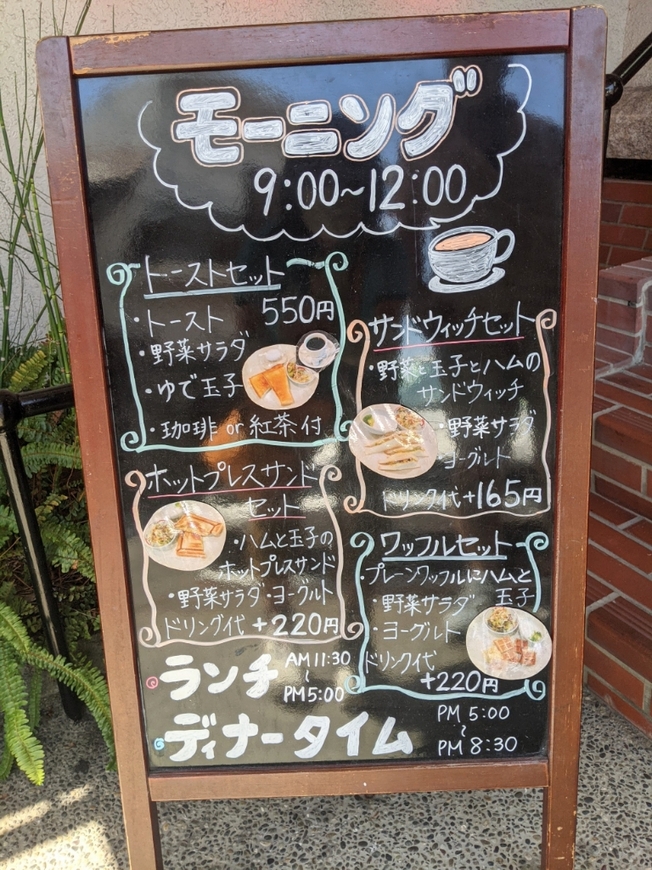 モーニング
9:00~12:00
トーストセット
・トースト 550円
・野菜サラダ
・ゆで玉子
・珈琲 or 紅茶付
サンドウィッチセット
・野菜と玉子とハムの
サンドウィッチ
・野菜サラダ
ヨーグルト
ドリンク代+165円
ホットプレスサンド
セット
・ハムと玉子の
ホットプレスサンド
・野菜サラダ・ヨーグルト
ドリンク代 +220円
ワッフルセット
・プレーンワッフルにハムと
玉子
・野菜サラダ
・ヨーグルト
ドリンク代
+220円
ランチ AM11:30
~
PM5:00
ディナータイム PM 5:00
~
PM 8:30